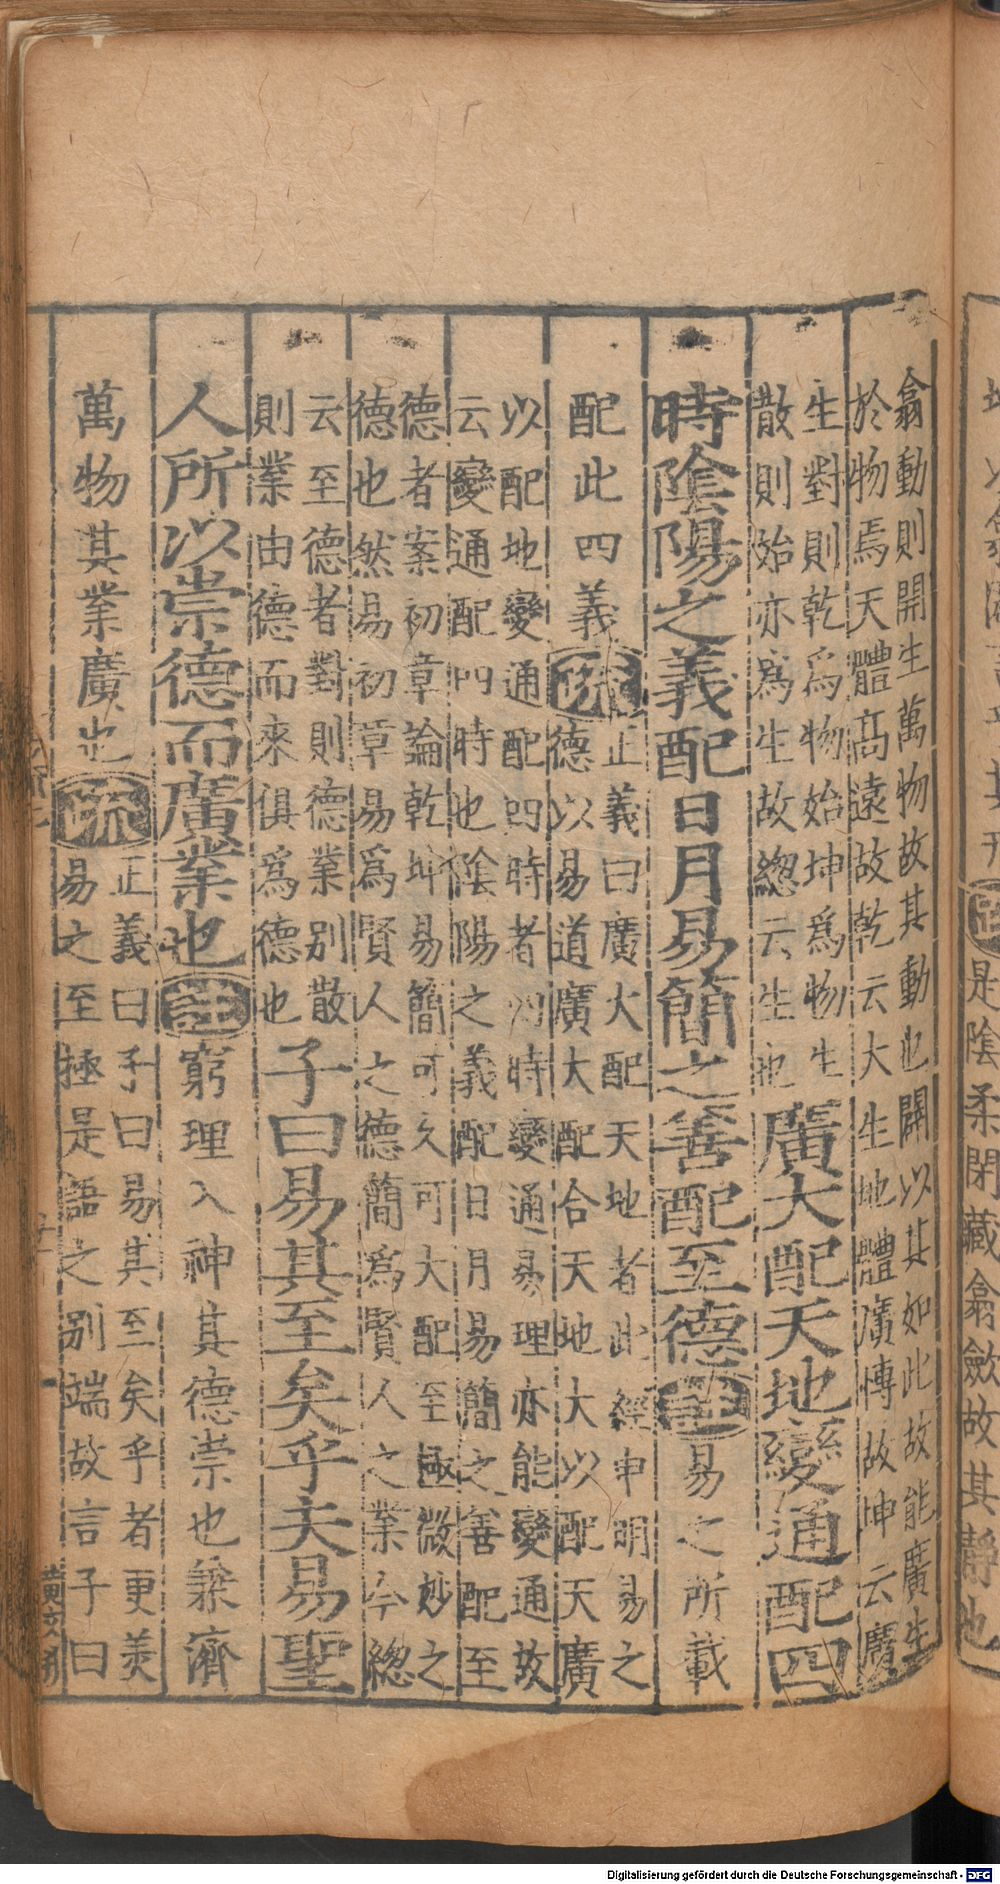 是陰柔閉藏翕歛故其靜也
翕動則開生萬物故其動也闢以其如此故能廣生
於物焉天體高遠故乾云大生地體廣慱故坤云廣
生對則乾爲物始坤爲物生
散則始亦爲生故緫云生也
廣大配天地變通配四
時陰陽之義配日月易簡之善配至德註易之所載
配此四義疏
正義曰廣大配天地者此經申明易之
德以易道廣大配合天地大以配天廣
以配地變通配四時者四時變通易理亦能變通故
云變通配四時也陰陽之義配日月易簡之善配至
德者案初章論乾坤易簡可久可大配至極微妙之
德也然易初章易爲賢人之德簡爲賢人之業今緫
云至德者對則德業別散
則業由德而來俱爲德也
子曰易其至矣乎夫易聖
人所以崇德而廣業也註窮理入神其德崇也兼濟
萬物其業廣也疏
正義曰子曰易其至矣乎者更美
易之至極是語之別端故言子曰
黄文
Digitalisierung gefördert durch die Deutsche Forschungsgemeinschaft - DFG